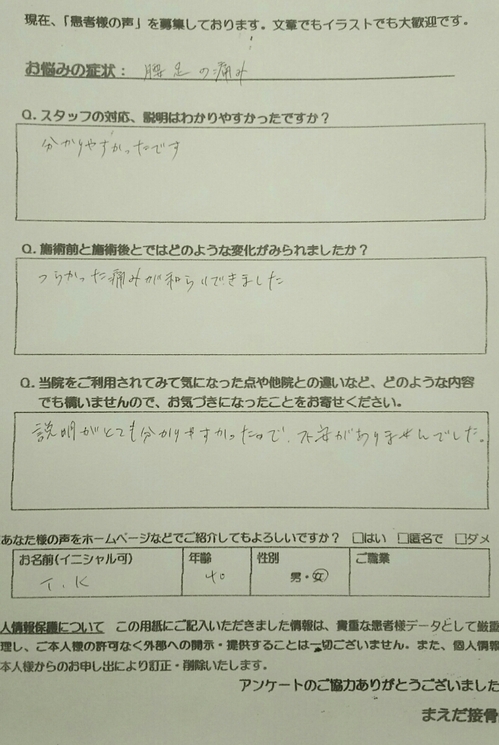 現在、「患者様の声」を募集しております。文章でもイラストでも大歓迎です。
お悩みの症状： 腰足の痛み
Q. スタッフの対応、説明はわかりやすかったですか？
分かりやすかったです
Q. 施術前と施術後とではどのような変化がみられましたか？
つらかった痛みが和らいできました
Q. 当院をご利用されてみて気になった点や他院との違いなど、どのような内容
でも構いませんので、お気づきになったことをお寄せください。
説明がとても分かりやすかったので、不安がありませんでした。
あなた様の声をホームページなどでご紹介してもよろしいですか？ □はい □匿名で □ダメ
お名前(イニシャル可) 年齢 性別 ご職業
T. K 40 男・女
人情報保護について この用紙にご記入いただきました情報は、貴重な患者様データとして厳重
理し、ご本人様の許可なく外部への開示・提供することは一切ございません。また、個人情報
本人様からのお申し出により訂正・削除いたします。
アンケートのご協力ありがとうございました
まえだ接骨